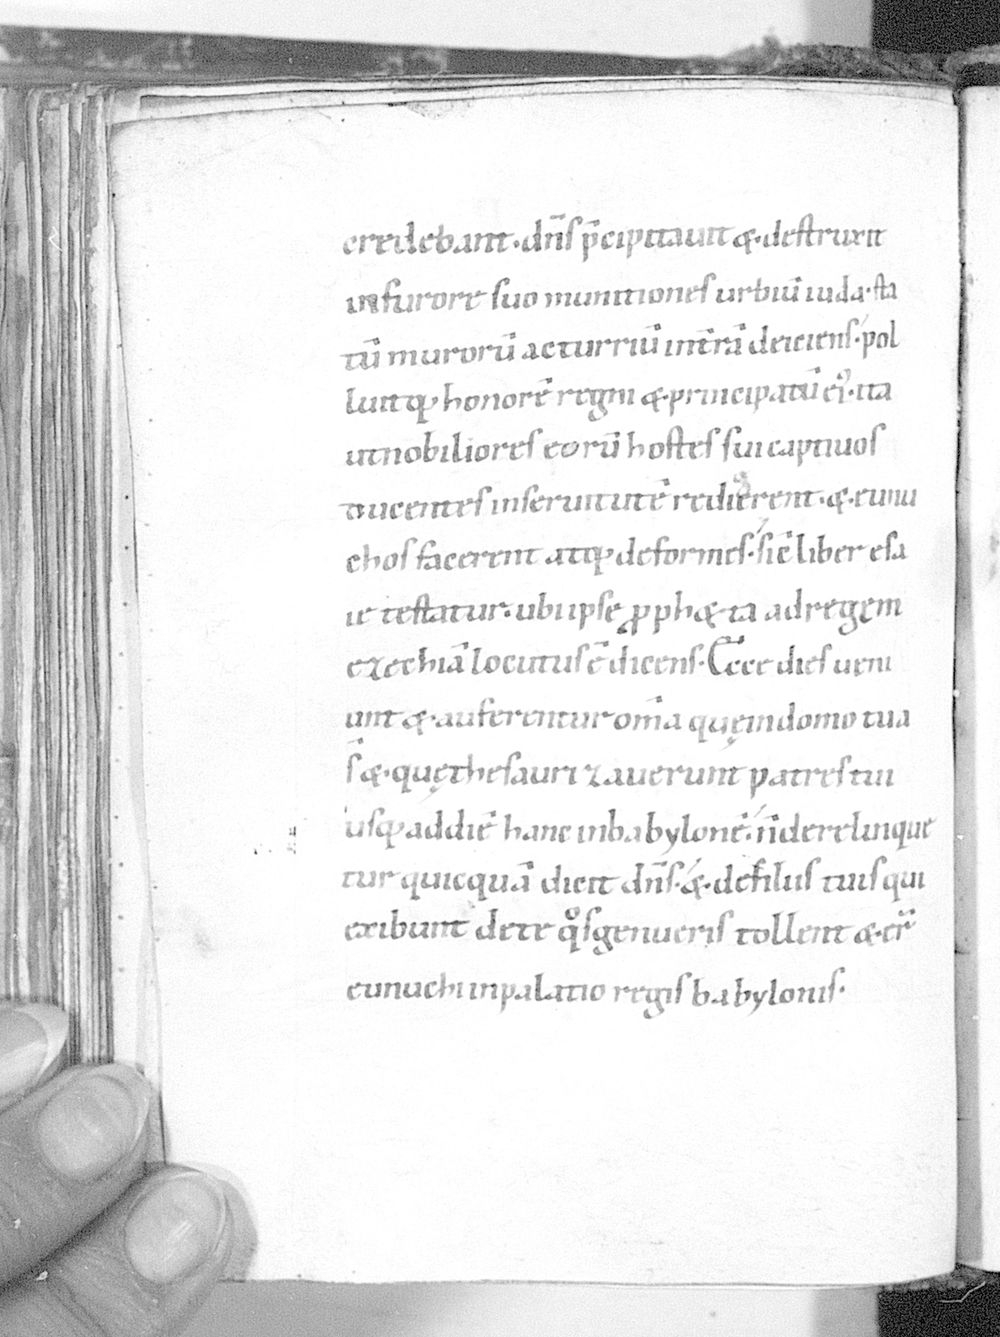 credebant. dn̄s p̄cipitauit &. destruxit
infurore suo munitiones urbiū iuda. sta
tū murorū acturriū int̄rā deiciens. pol
luitq; honorē regni &. principatū ei'. ita
utnobiliores eorū hostes sui captiuos
ducentes inseruitutē redierent. &. eunu
chos facerent atq; deformes. sic̄ liber esa
ie testatur. ubi ipse ꝓph&a ad regem
ezechiā locutus ē dicens. Ecce dies ueni
unt &. auferentur om̄a quę indomo tua
s̄ &. quę thesaurizauerunt patres tui
usq; addiē hanc inbabylonē. n̄ derelinque
tur quicquā dicit dn̄s. &. defilus tuis qui
exibunt dete q̊s genueris tollent &. er̄
eunuchi inpalatio regis babylonis.